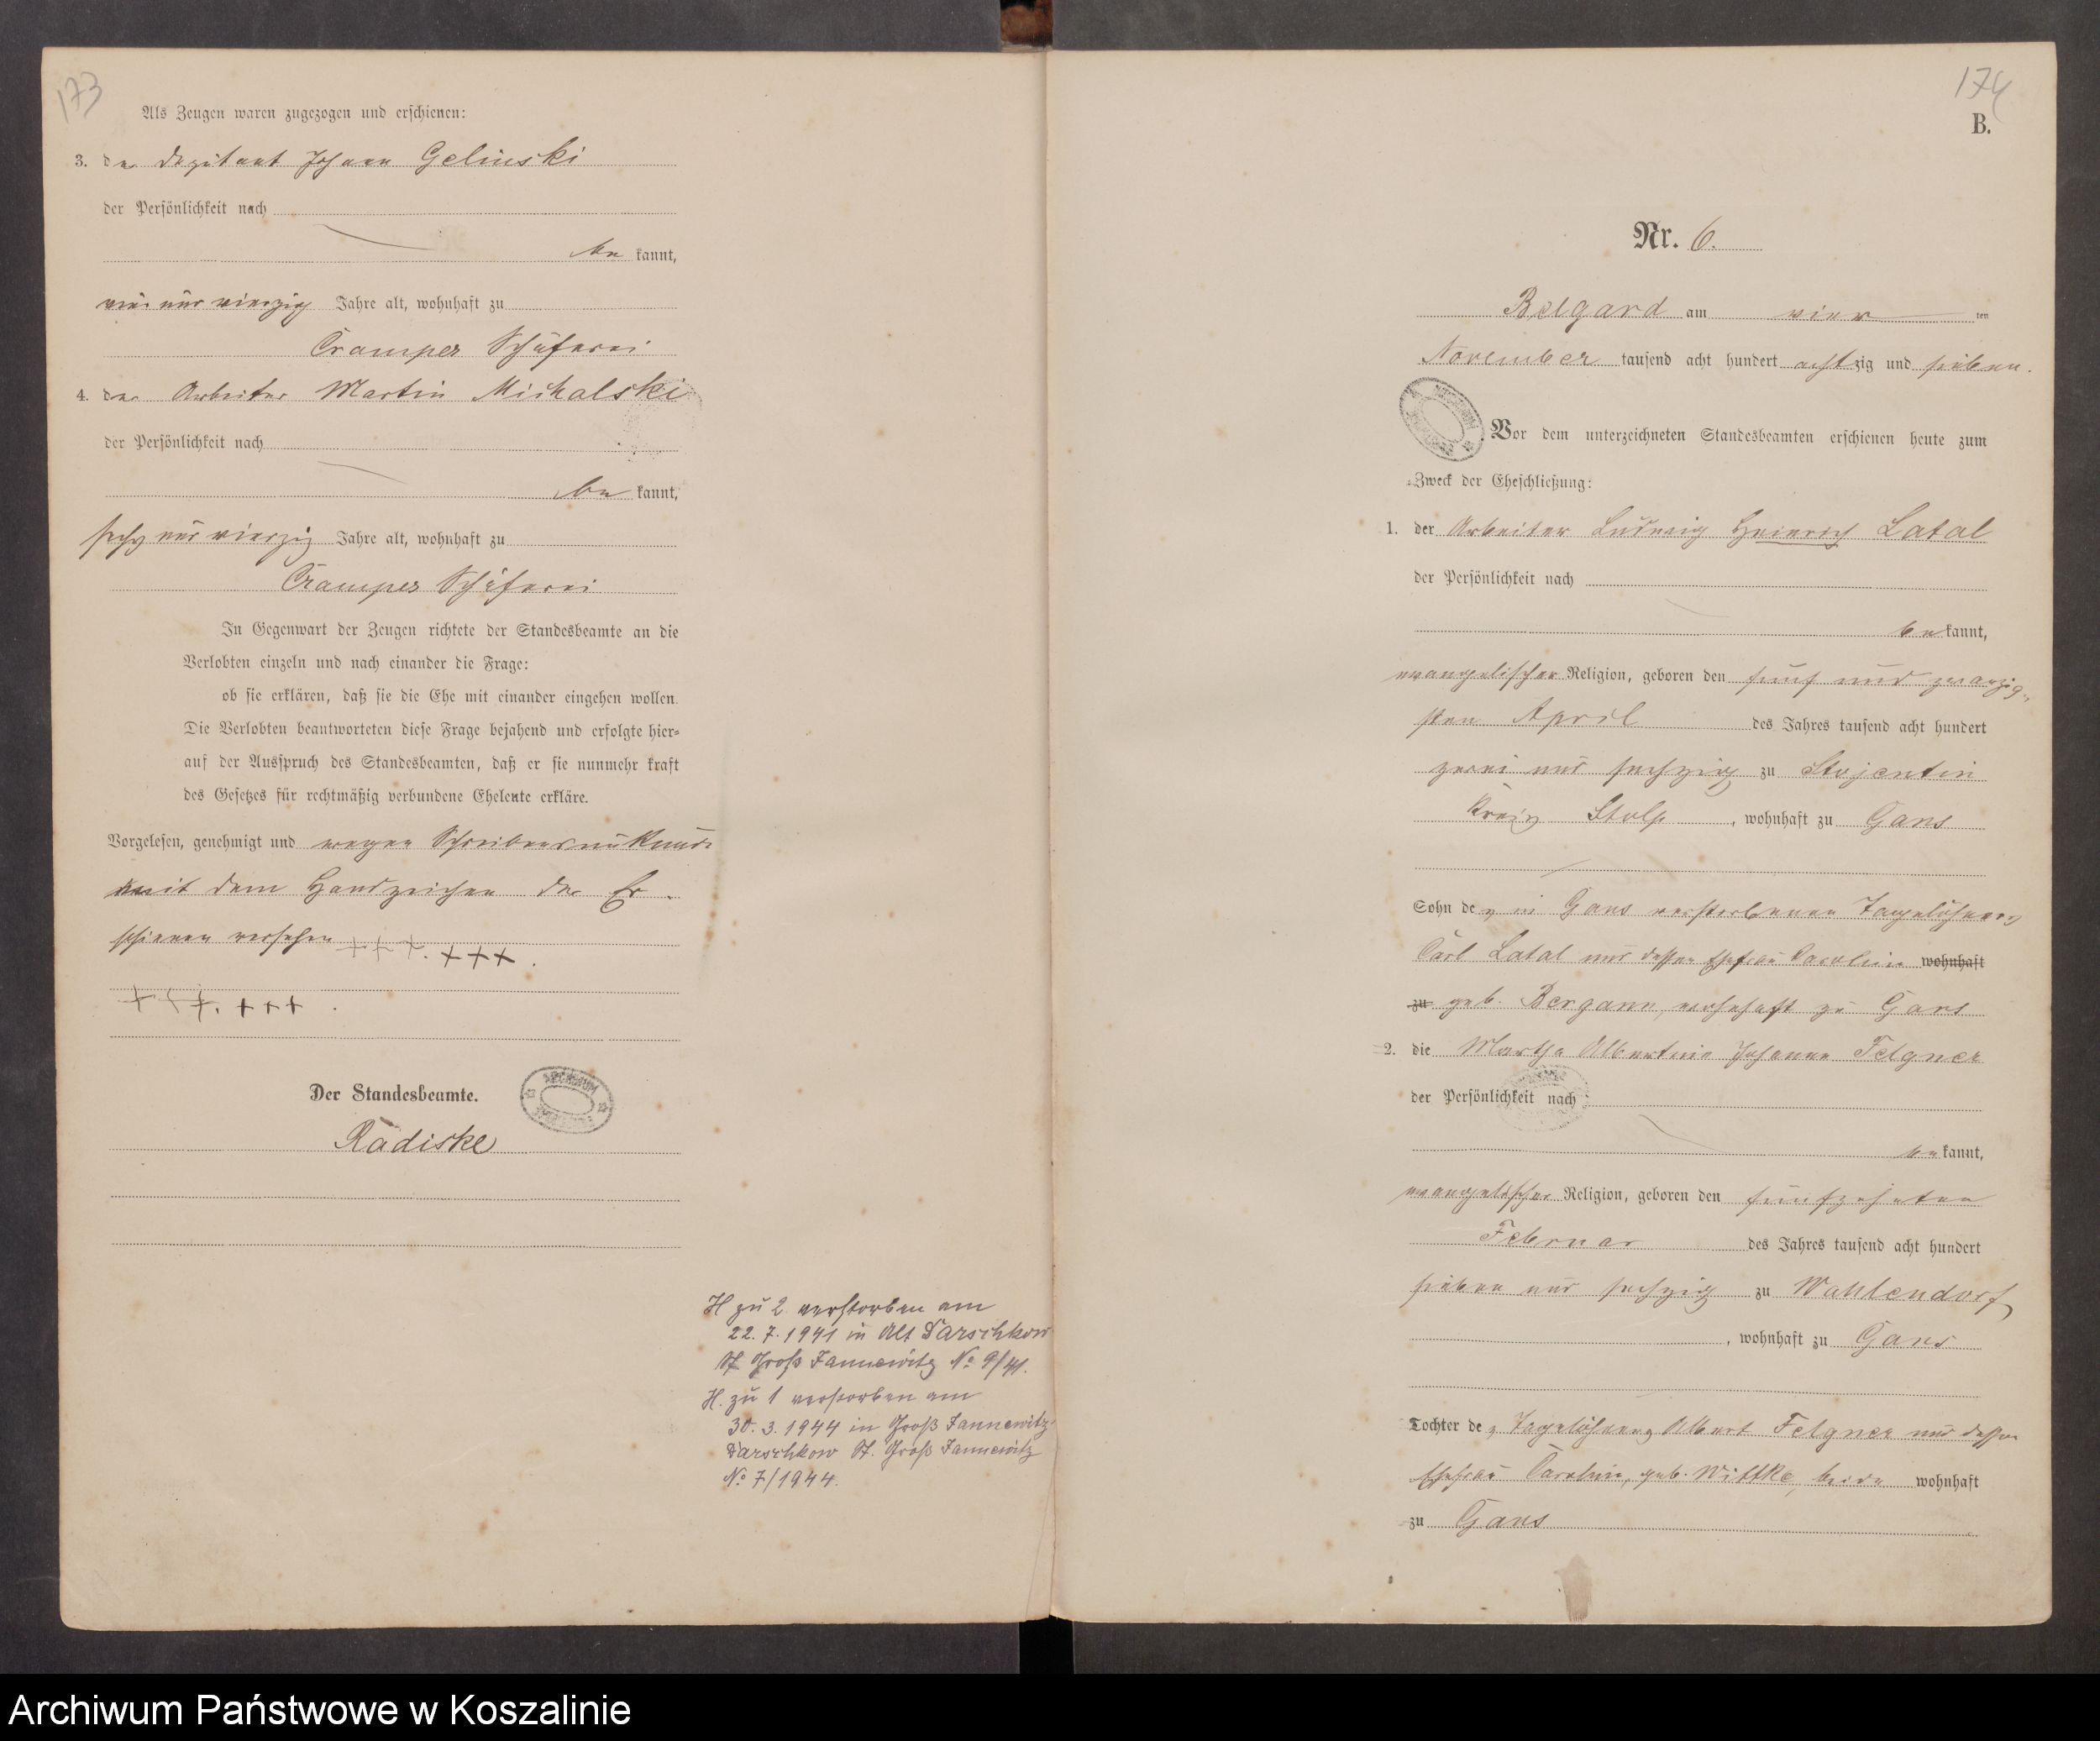 173
Als Zeugen waren zugezogen und erschienen:
3. der Deputant Johann Gelinski
der Persönlichkeit nach
be kannt,
vier und vierzig Jahre alt, wohnhaft zu
Cramper Schäferei
4. der Arbeiter Martin Michalski
der Persönlichkeit nach
be kannt,
sechs und vierzig Jahre alt, wohnhaft zu
Cramper Schäferei
In Gegenwart der Zeugen richtete der Standesbeamte an die
Verlobten einzeln und nach einander die Frage:
ob sie erklären, daß sie die Ehe mit einander eingehen wollen.
Die Verlobten beantworteten diese Frage bejahend und erfolgte hier-
auf der Ausspruch des Standesbeamten, daß er sie nunmehr kraft
des Gesetzes für rechtmäßig verbundene Eheleute erkläre.
Vorgelesen, genehmigt und wegen Schreibensunkunde
mit dem Handzeichen der Er-
schienen versehen +++. +++.
+++. +++.
Der Standesbeamte.
Radiske
H zu 2 verstorben am
22.7.1941 in Alt Darschkow
St Groß Jannewitz No 9/41.
H. zu 1 verstorben am
30.3.1944 in Groß Jannewitz-
Darschkow St. Groß Jannewitz
No 7/1944.
174
B.
Nr. 6.
Belgard am vier ten
November tausend acht hundert acht zig und sieben.
Vor dem unterzeichneten Standesbeamten erschienen heute zum
Zweck der Eheschließung:
1. der Arbeiter Ludwig Heinrich Latal
der Persönlichkeit nach
be kannt,
evangelischer Religion, geboren den fünf und zwanzig-
sten April des Jahres tausend acht hundert
zwei und sechzig zu Stojentin
Kreis Stolp, wohnhaft zu Gans
Sohn des in Gans verstorbenen Tagelöhners
Carl Latal und dessen Ehefrau Carolin wohnhaft
zu geb. Bergann, wohnhaft zu Gans
2. die Martha Albertine Johanne Felgner
der Persönlichkeit nach
be kannt,
evangelischer Religion, geboren den fünfzehnten
Februar des Jahres tausend acht hundert
sieben und sechzig zu Wahlendorf
, wohnhaft zu Gans
Tochter des Tagelöhners Albert Felgner und dessen
Ehefrau Caroline, geb. Wittke, beide wohnhaft
zu Gans
Archiwum Państwowe w Koszalinie